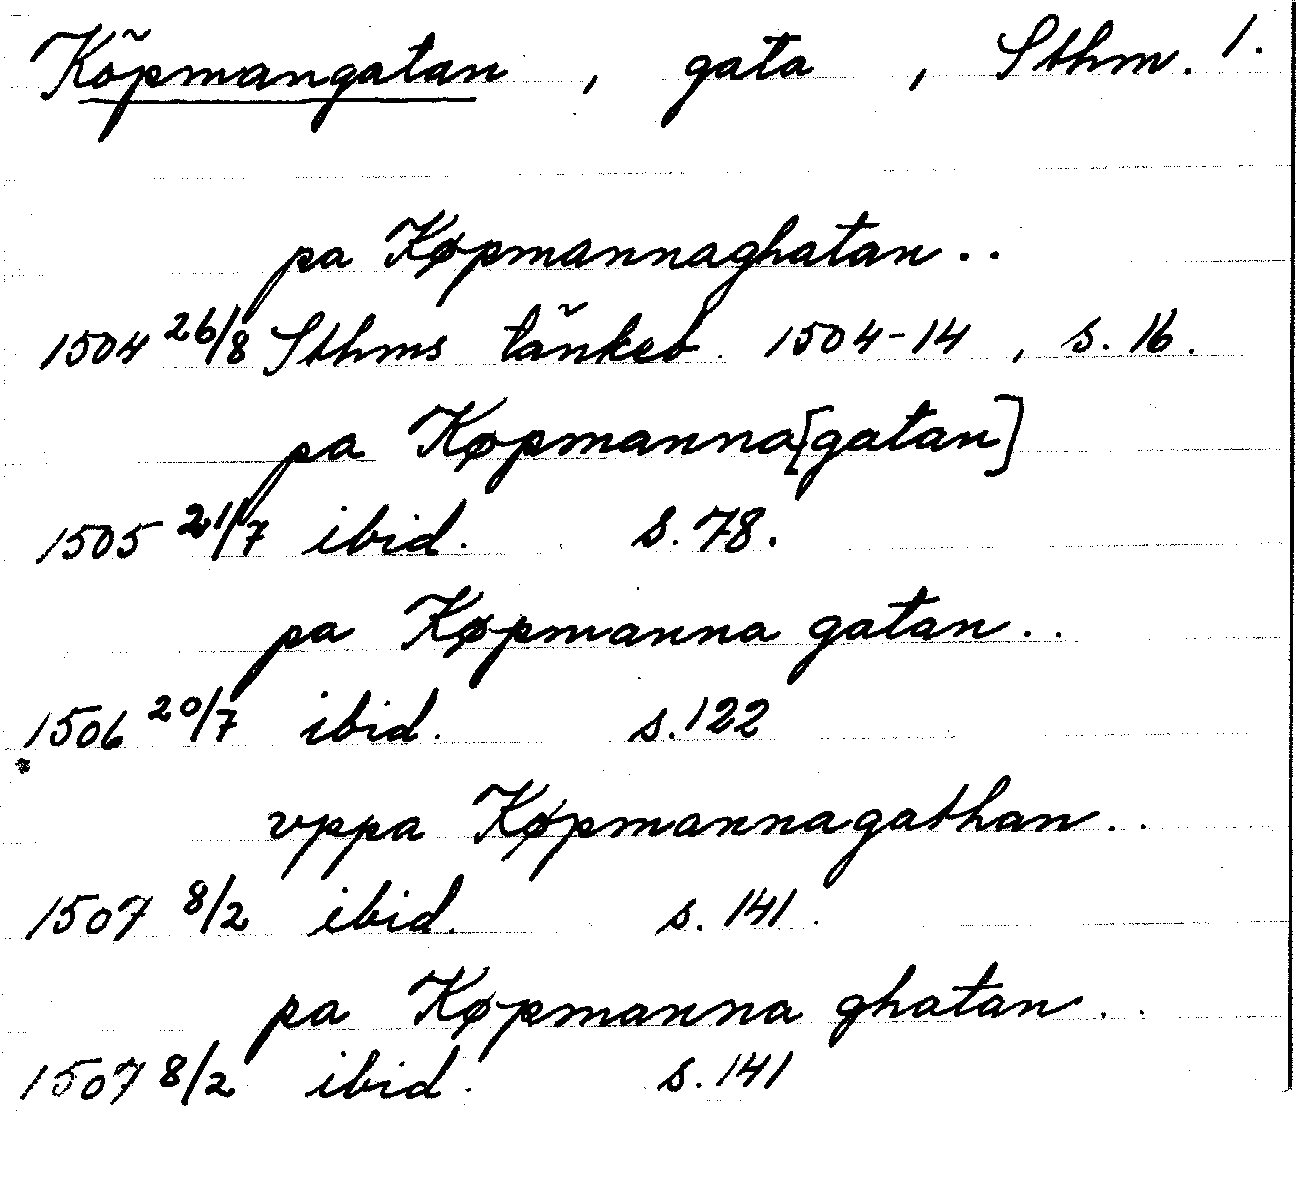 Köpmangatan, gata, Sthm. 1.
pa Køpmannaghatan..
1504 26/8 Sthms tänkeb. 1504-14, s. 16.
pa Køpmanna[gatan]
1505 21/7 ibid. s. 78.
pa Køpmanna gatan..
1506 20/7 ibid. s. 122
vppa Køpmannagathan..
1507 8/2 ibid. s. 141.
pa Køpmanna ghatan..
1507 8/2 ibid. s. 141